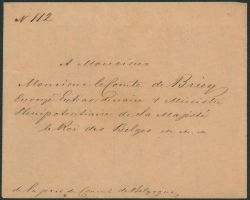 N 112
A Monsieur
Monsieur le Comte de Briey
Envoyé Extraordinaire & Ministre
Plénipotentiaire de Sa Majesté
le Roi des Belges
de la part du Consul de Belgique